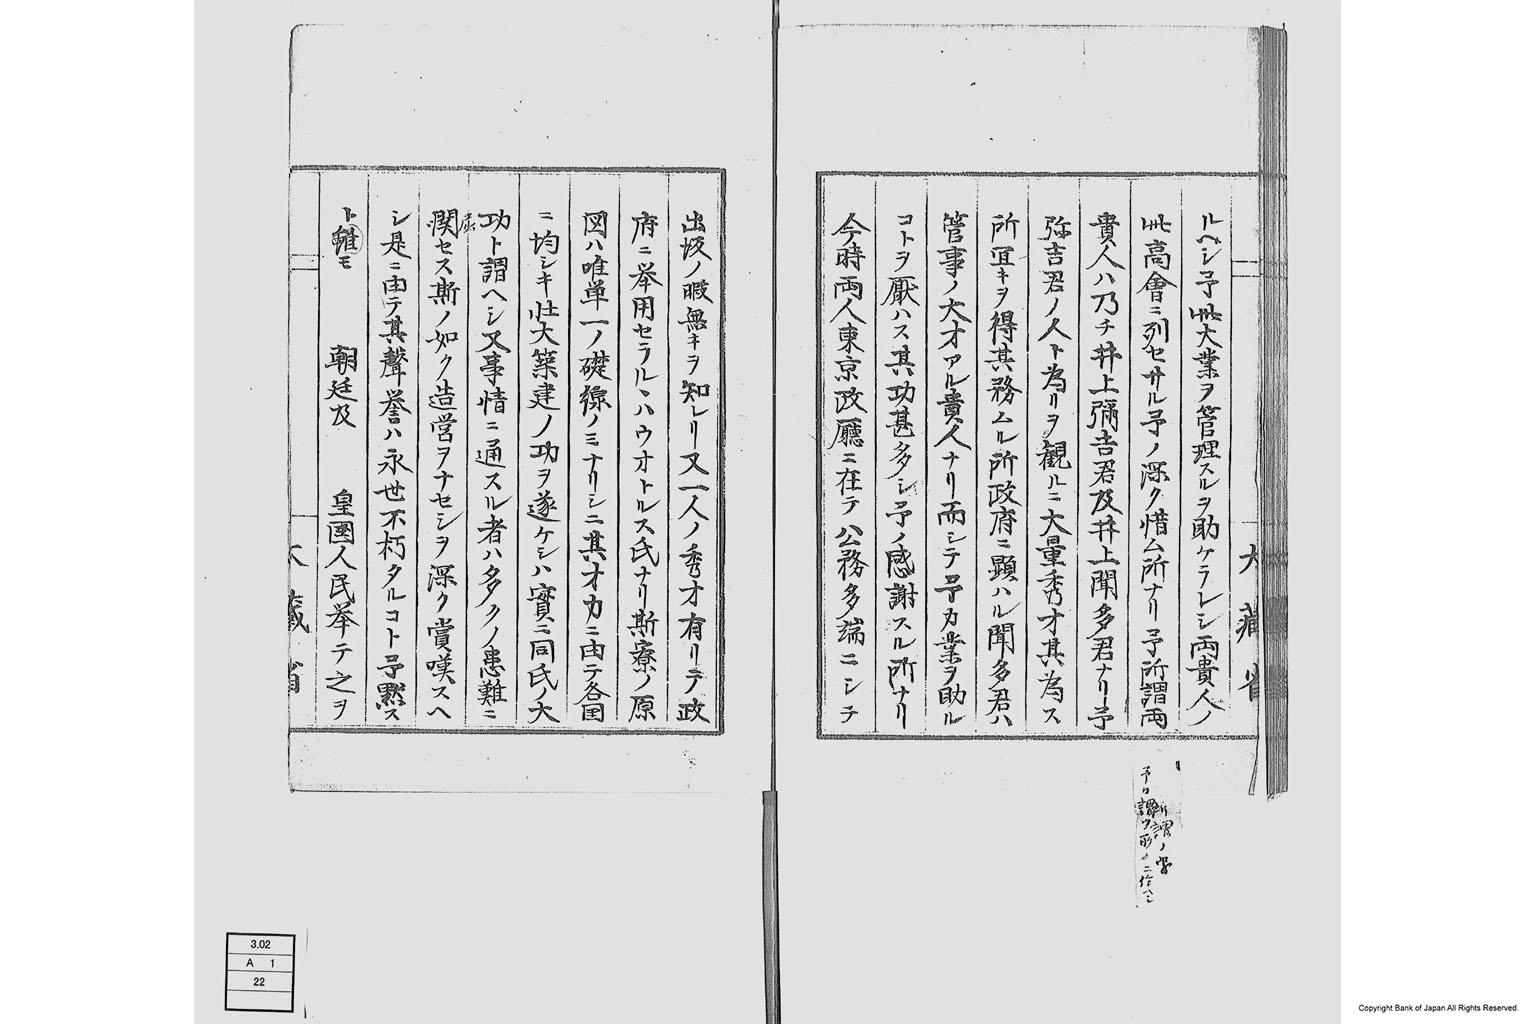 ルベシ予此大業ヲ管理スルヲ助ケラレシ両貴人ノ
此高會ニ列セサル予ノ深ク惜ム所ナリ予所謂両
貴人ハ乃チ井上彌吉君及井上聞多君ナリ予
弥吉君ノ人ト為リヲ観ルニ大量秀才其為ス
所宜キヲ得其務ムル所政府ニ顕ハル聞多君ハ
管事ノ大才アル貴人ナリ而シテ予カ業ヲ助ル
コトヲ厭ハス其功甚多シ予ノ感謝スル所ナリ
今時両人東京政廳ニ在テ公務多端ニシテ
大藏省
出坂ノ暇無キヲ知レリ又一人ノ秀才有リテ政
府ニ挙用セラルヽハウオトルス氏ナリ斯寮ノ原
図ハ唯単一ノ礎線ノミナリシニ其才力ニ由テ各国
ニ均シキ壮大築建ノ功ヲ遂ケシハ實ニ同氏ノ大
功ト謂ヘシ又事情ニ通スル者ハ多クノ患難ニ
屈
関セス斯ノ如ク造営ヲナセシヲ深ク賞嘆スヘ
シ是ニ由テ其聲誉ハ永世不朽タルコト予黙ス
ト雖モ 朝廷及 皇國人民挙テ之ヲ
大藏省
3.02
A 1
22
Copyright Bank of Japan All Rights Reserved.